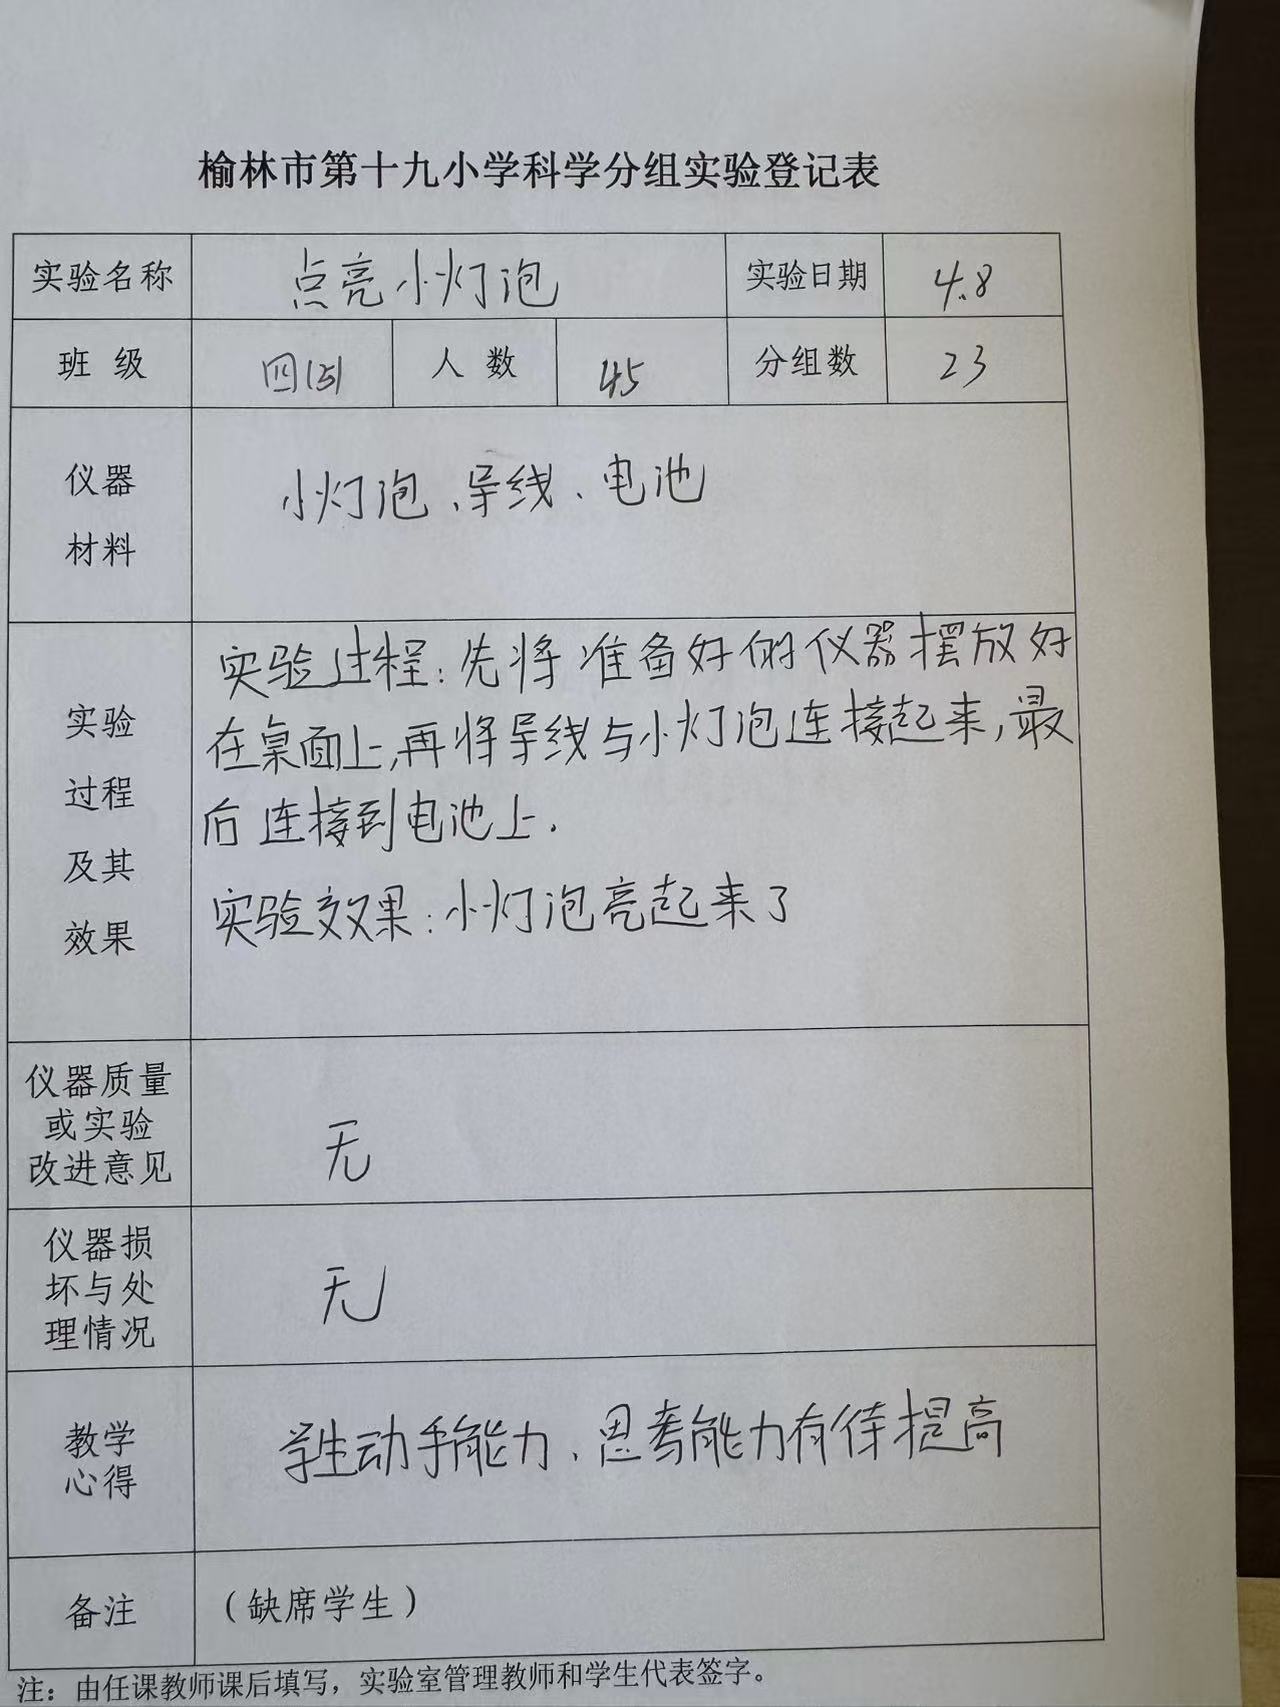 榆林市第十九小学科学分组实验登记表
实验名称 点亮小灯泡 实验日期 4.8
班 级 四(5) 人 数 45 分组数 23
仪器
材料
小灯泡、导线、电池
实验
过程
及其
效果
实验过程:先将准备好的仪器摆放好
在桌面上,再将导线与小灯泡连接起来,最
后连接到电池上.
实验效果:小灯泡亮起来了
仪器质量
或实验
改进意见
无
仪器损
坏与处
理情况
无
教学
心得
学生动手能力、思考能力有待提高
备注 (缺席学生)
注:由任课教师课后填写,实验室管理教师和学生代表签字。